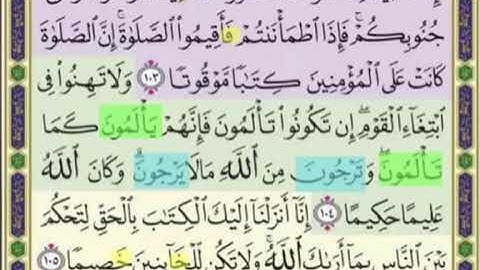 جُنُوبِكُمْ ۚ فَإِذَا ٱطْمَأْنَنتُمْ فَأَقِيمُوا۟ ٱلصَّلَوٰةَ ۚ إِنَّ ٱلصَّلَوٰةَ
كَانَتْ عَلَى ٱلْمُؤْمِنِينَ كِتَـٰبًا مَّوْقُوتًا ١٠٣ وَلَا تَهِنُوا۟ فِى
ٱبْتِغَآءِ ٱلْقَوْمِ ۖ إِن تَكُونُوا۟ تَأْلَمُونَ فَإِنَّهُمْ يَأْلَمُونَ كَمَا
تَأْلَمُونَ ۖ وَتَرْجُونَ مِنَ ٱللَّهِ مَا لَا يَرْجُونَ ۗ وَكَانَ ٱللَّهُ
عَلِيمًا حَكِيمًا ١٠٤ إِنَّآ أَنزَلْنَآ إِلَيْكَ ٱلْكِتَـٰبَ بِٱلْحَقِّ لِتَحْكُمَ
بَيْنَ ٱلنَّاسِ بِمَآ أَرَىٰكَ ٱللَّهُ ۚ وَلَا تَكُن لِّلْخَآئِنِينَ خَصِيمًا ١٠٥